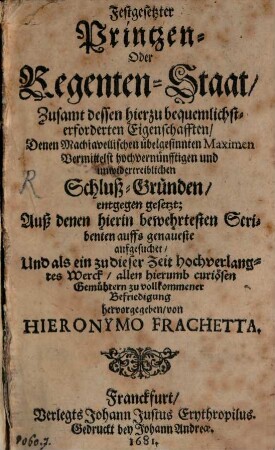 Festgesetzter
Printzen-
Oder
Regenten-Staat/
Zusamt dessen hierzu bequemlichst-
erforderten Eigenschafften/
Denen Machiavellischen übelgesinnten Maximen
Vermittelst hochvernünfftigen und
unwidertreiblichen
Schluß-Gründen/
entgegen gesetzt:
Auß denen hierin bewehrtesten Scri-
benten auffs genaueste
aufgesuchet/
Und als ein zu dieser Zeit hochverlang-
tes Werck/ allen hierumb curiösen
Gemühtern zu vollkommener
Befriedigung
hervorgegeben/von
HIERONYMO FRACHETTA.
Franckfurt/
Verlegts Johann Justus Erythropilus.
Gedruckt bey Johann Andreæ.
1681.